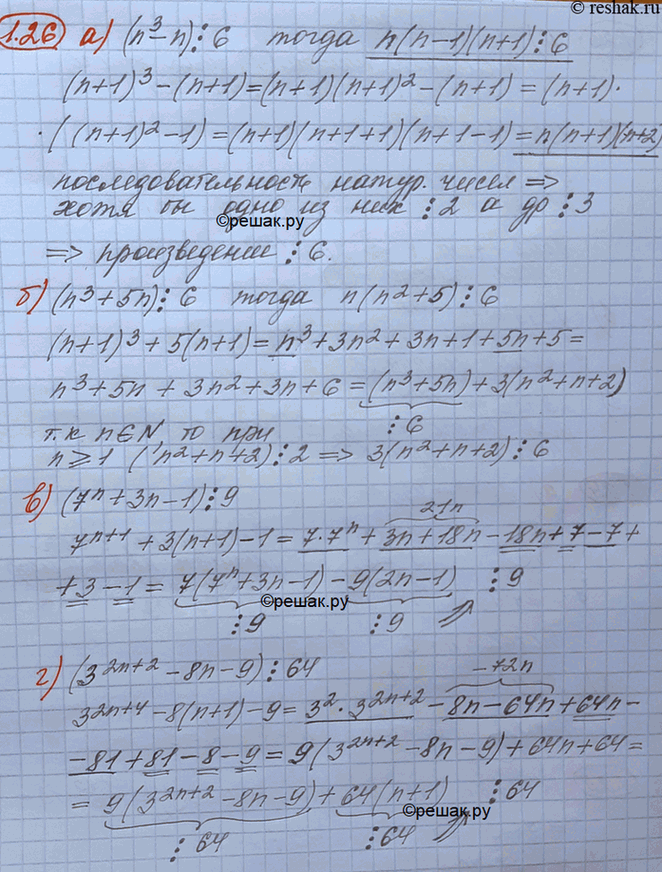 © reshak.ru
1.26 а) (n³-n)⋮6 тогда n(n-1)(n+1)⋮6
(n+1)³-(n+1)=(n+1)(n+1)²-(n+1)=(n+1)·
·((n+1)²-1)=(n+1)(n+1+1)(n+1-1)=n(n+1)(n+2)
последовательность натур. чисел =>
хотя бы одно из них ⋮2 а др ⋮3
©решак.ру
=> произведение ⋮6.
б) (n³+5n)⋮6 тогда n(n²+5)⋮6
(n+1)³+5(n+1)=n³+3n²+3n+1+5n+5=
n³+5n+3n²+3n+6=(n³+5n)+3(n²+n+2)
⋮6
т.к n∈N, то при
n⩾1 (n²+n+2)⋮2 => 3(n²+n+2)⋮6
в) (7ⁿ+3n-1)⋮9
21n
7ⁿ⁺¹+3(n+1)-1=7·7ⁿ+3n+18n-18n+7-7+
+3-1=7(7ⁿ+3n-1)-9(2n-1) ⋮9
©решак.ру
⋮9 ⋮9
г) (3²ⁿ⁺²-8n-9)⋮64
-72n
3²ⁿ⁺⁴-8(n+1)-9=3²·3²ⁿ⁺²-8n-64n+64n-
-81+81-8-9=9(3²ⁿ⁺²-8n-9)+64n+64=
=9(3²ⁿ⁺²-8n-9)+64(n+1) ⋮64
©решак.ру
⋮64 ⋮64